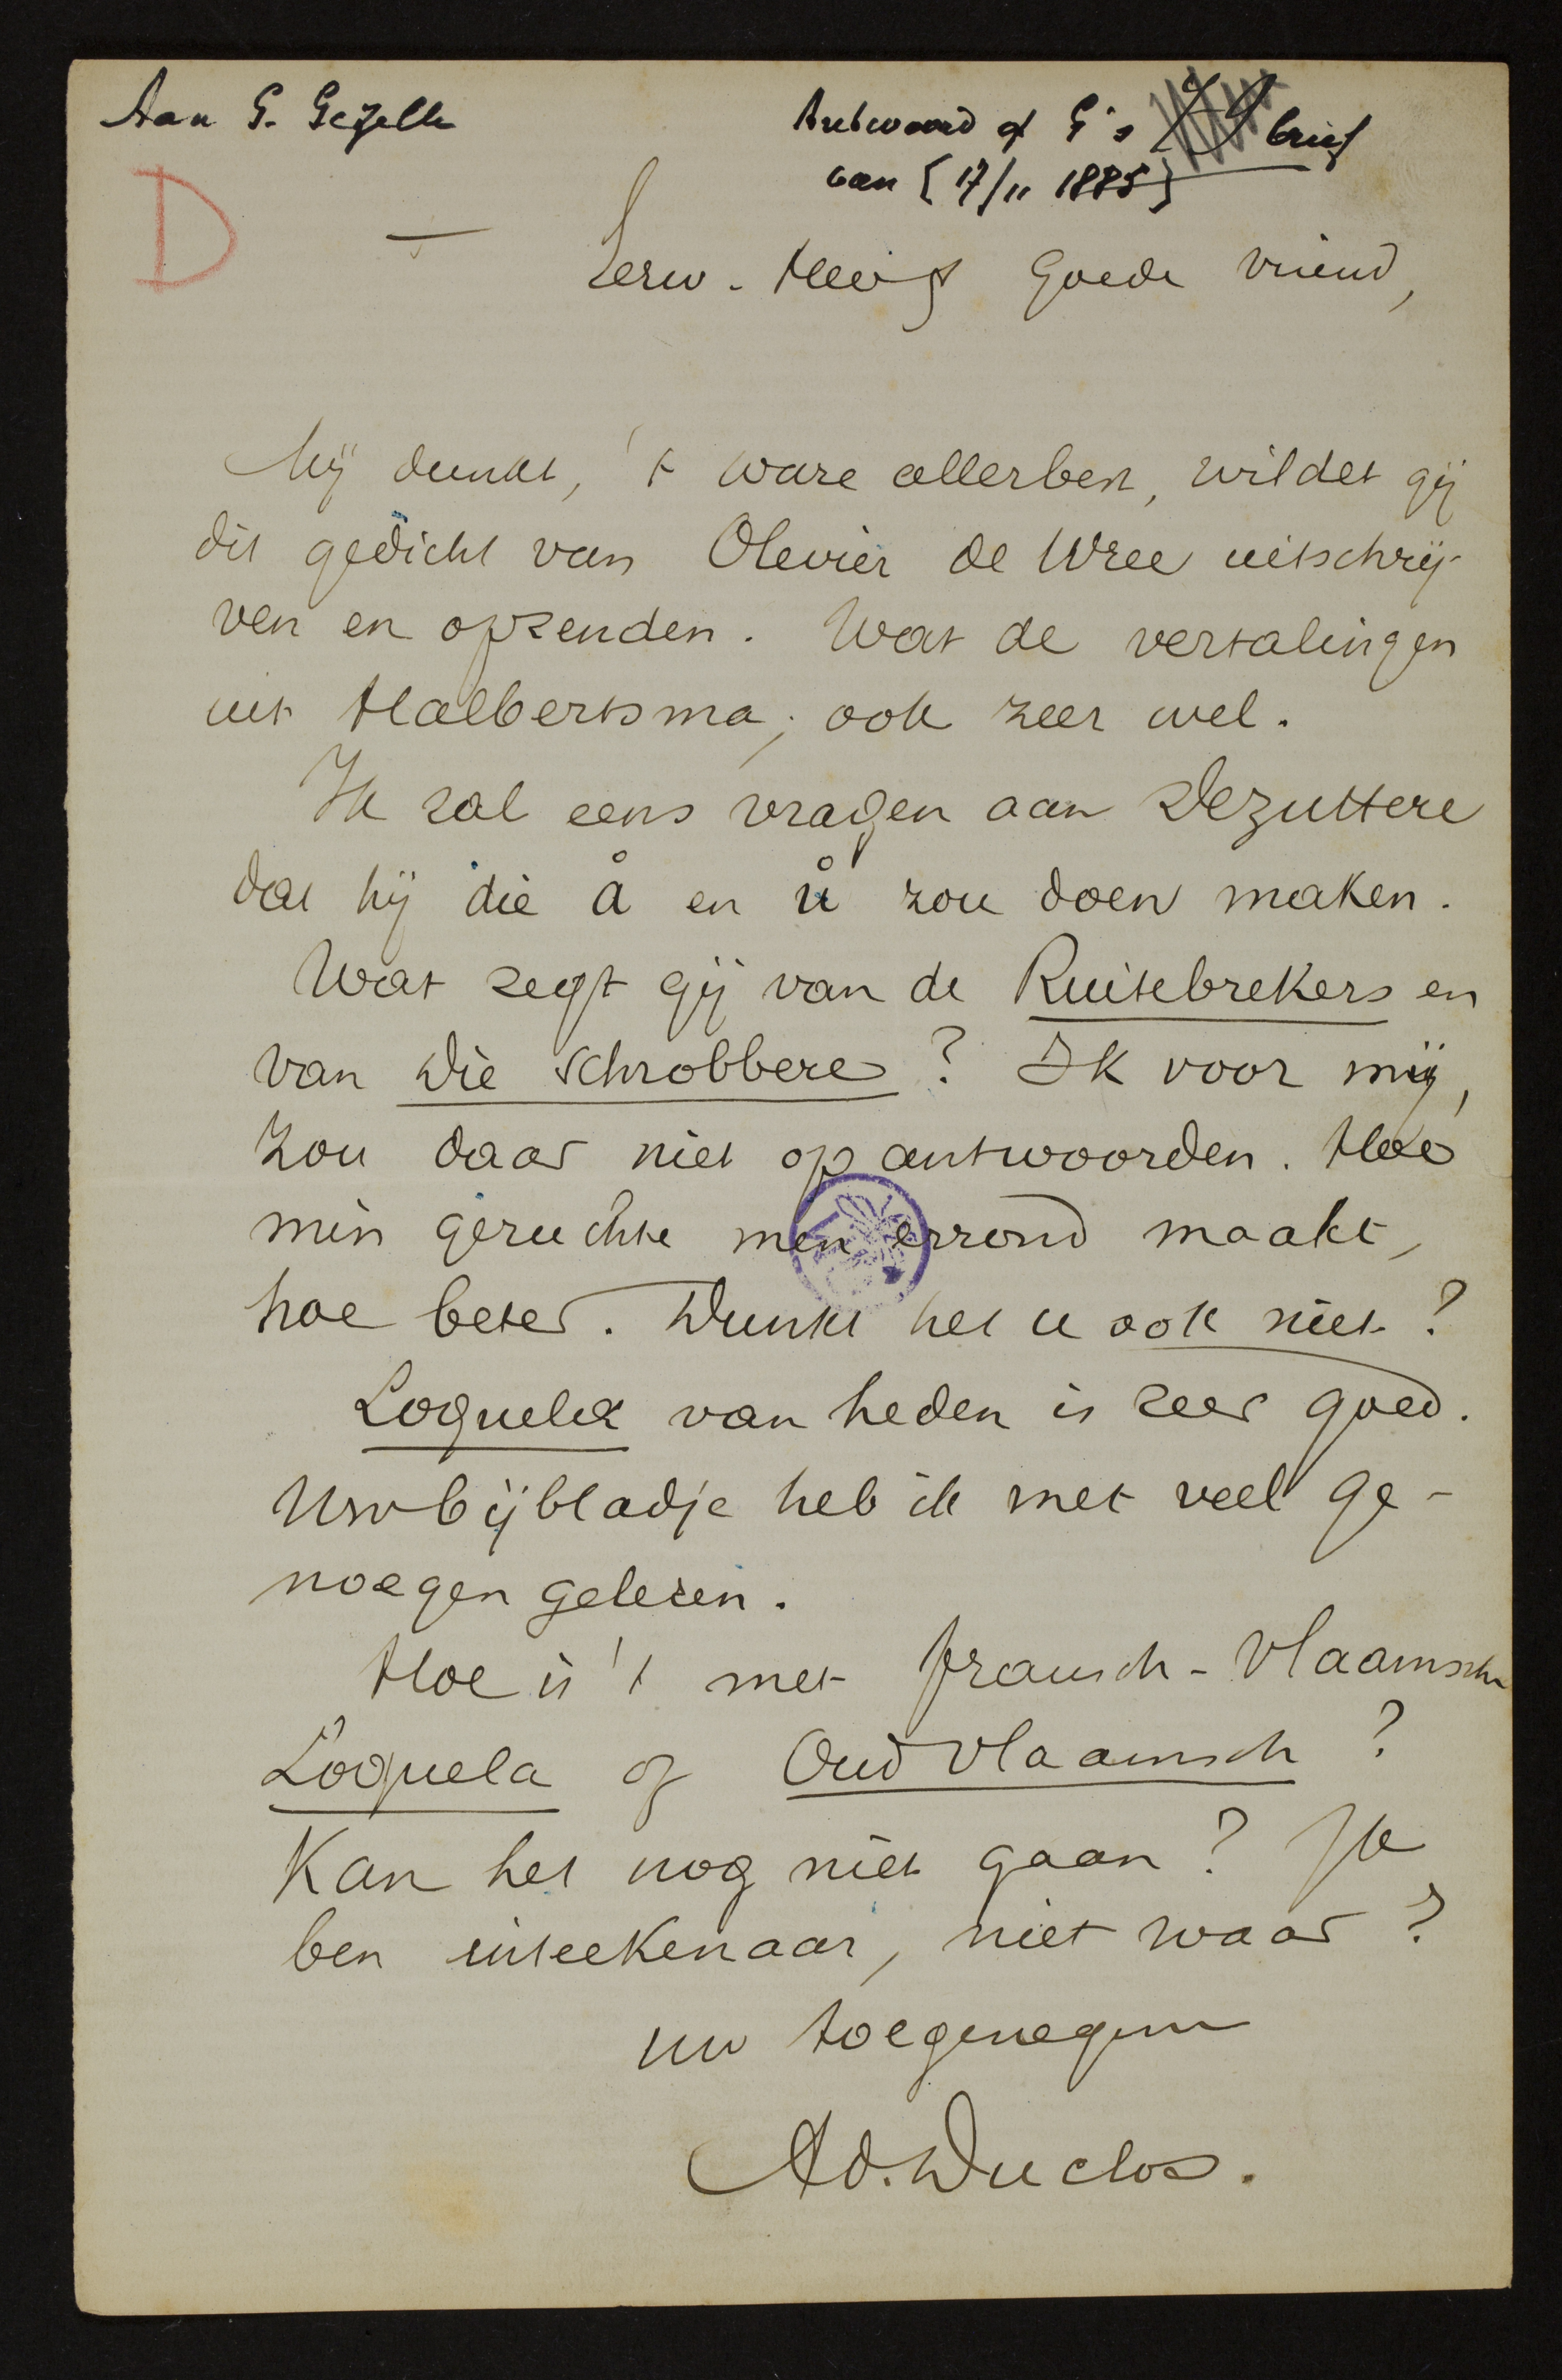 Aan G. Gezelle
Antwoord op G's brief
van [17/11 1885]
D
Eerw. Heer & goede vriend,
Mij dunkt, 't ware allerbest, wildet gij
dit gedicht van Olevier de Wree uitschrij-
ven en opzenden. Wat de vertalingen
uit Halbertsma, ook zeer wel.
Ik zal eens vragen aan Dezuttere
dat hij die å en ů zou doen maken.
Wat zegt gij van de Ruitebrekers en
van Die Schrobbere? Ik voor mij,
zou daar niet op antwoorden. Hoe
min geruchte men errond maakt,
hoe beter. Dunkt het u ook niet?
Loquela van heden is zeer goed.
Uw bijbladje heb ik met veel ge-
noegen gelezen.
Hoe is 't met fransch-vlaamsche
Loquela of Oud vlaamsch?
Kan het nog niet gaan? Ik
ben inteekenaar, niet waar?
uw toegenegen
Ad. Duclos.